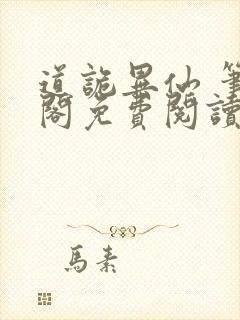 道詭異仙 筆
閣免費閱讀
馬素